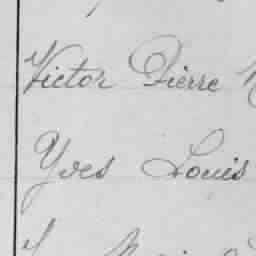 Victor Pierre
Yves Louis